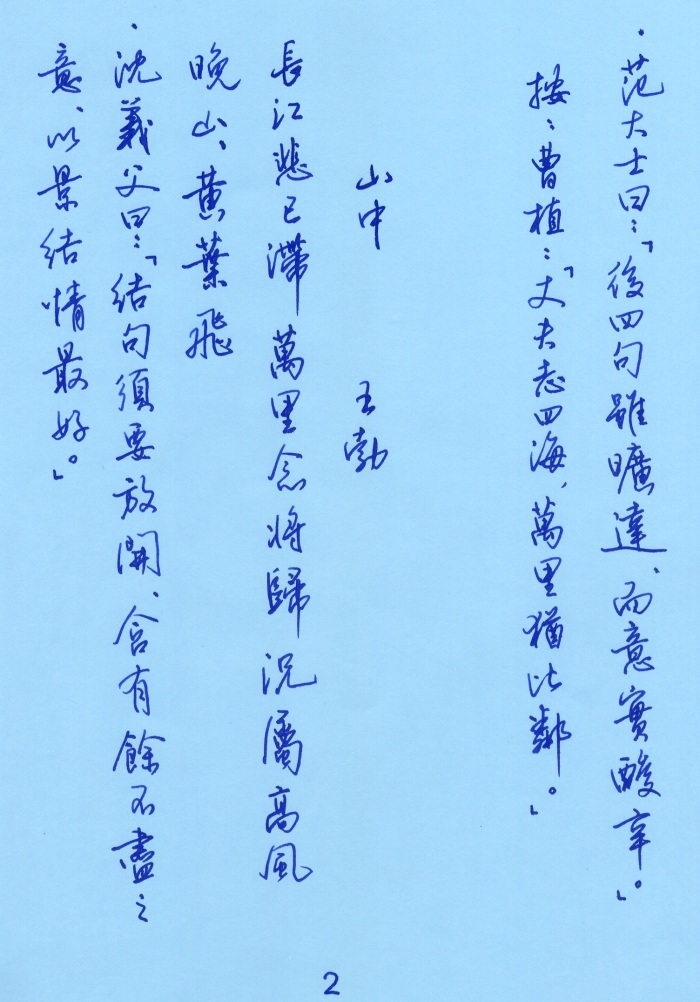 ·范大士曰：「後四句雖曠達、而意實酸辛。」
按：曹植：「丈夫志四海，萬里猶比鄰。」
山中　王勃
長江悲已滯萬里念將歸況屬高風
晚山、黃葉飛
·沈義父曰：「結句須要放開、含有餘不盡之
意、以景結情最好。」
2